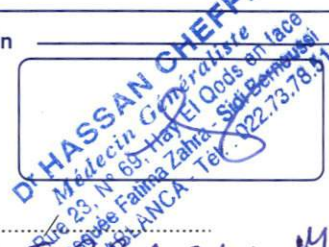 n
Dr HASSAN CHEFF
Médecin Généraliste
Rue 23, N° 69, Hay El Qods en face
Fatima Zahra - Sidi Bernoussi
Tél. : 022.73.78.51